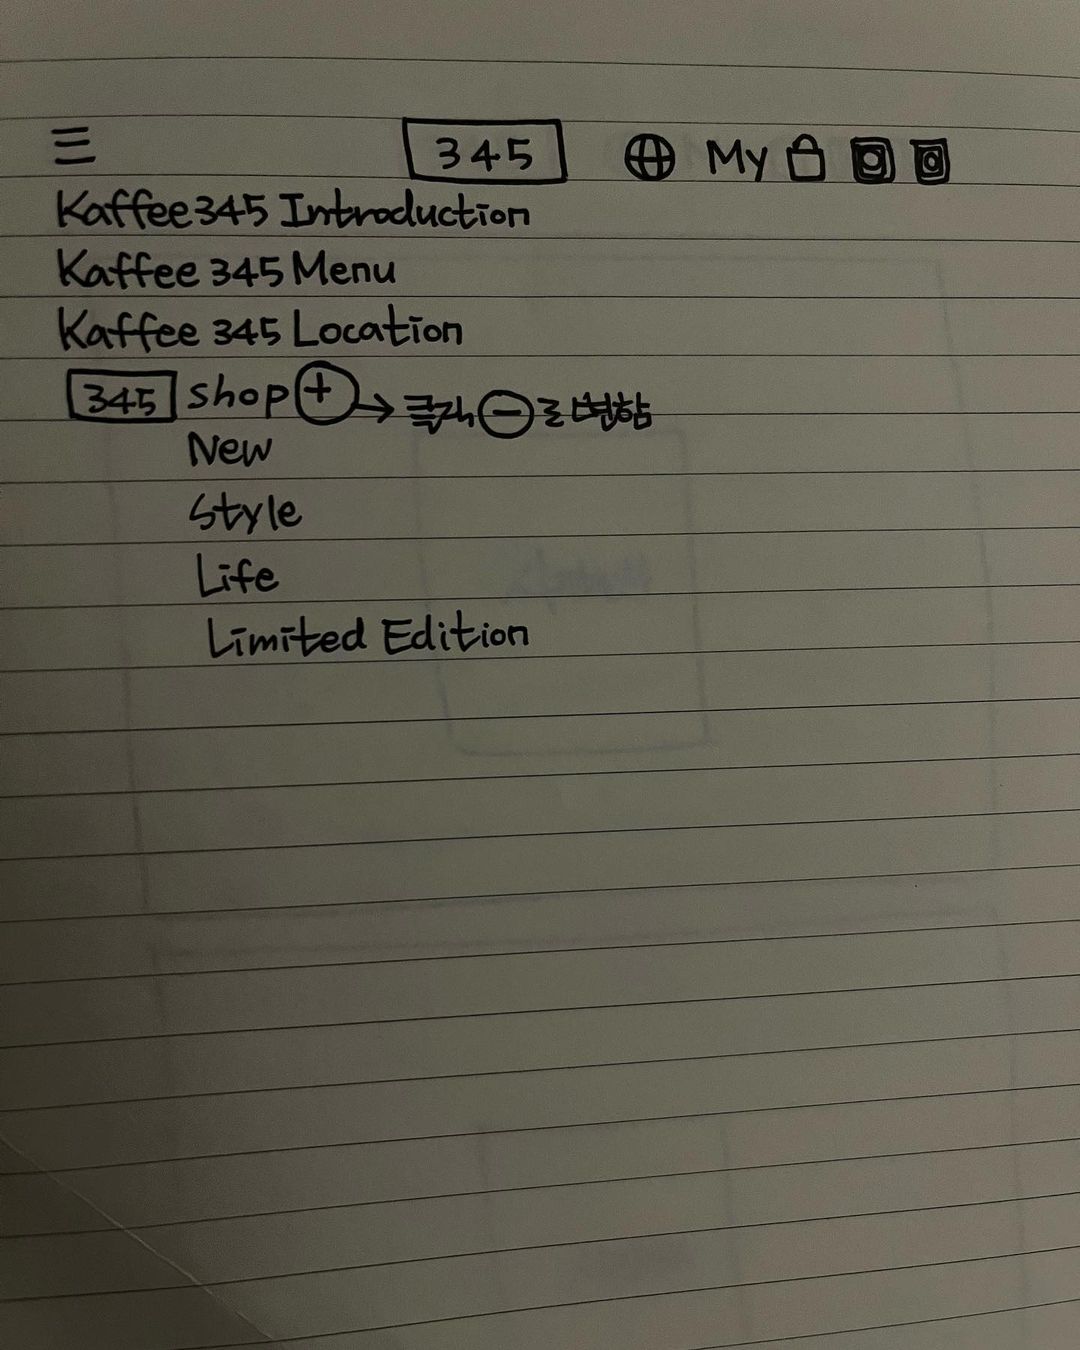 345 My
Kaffee345 Introduction
Kaffee 345 Menu
Kaffee 345 Location
345 shop + → 클릭 - 로 변함
New
Style
Life
Limited Edition